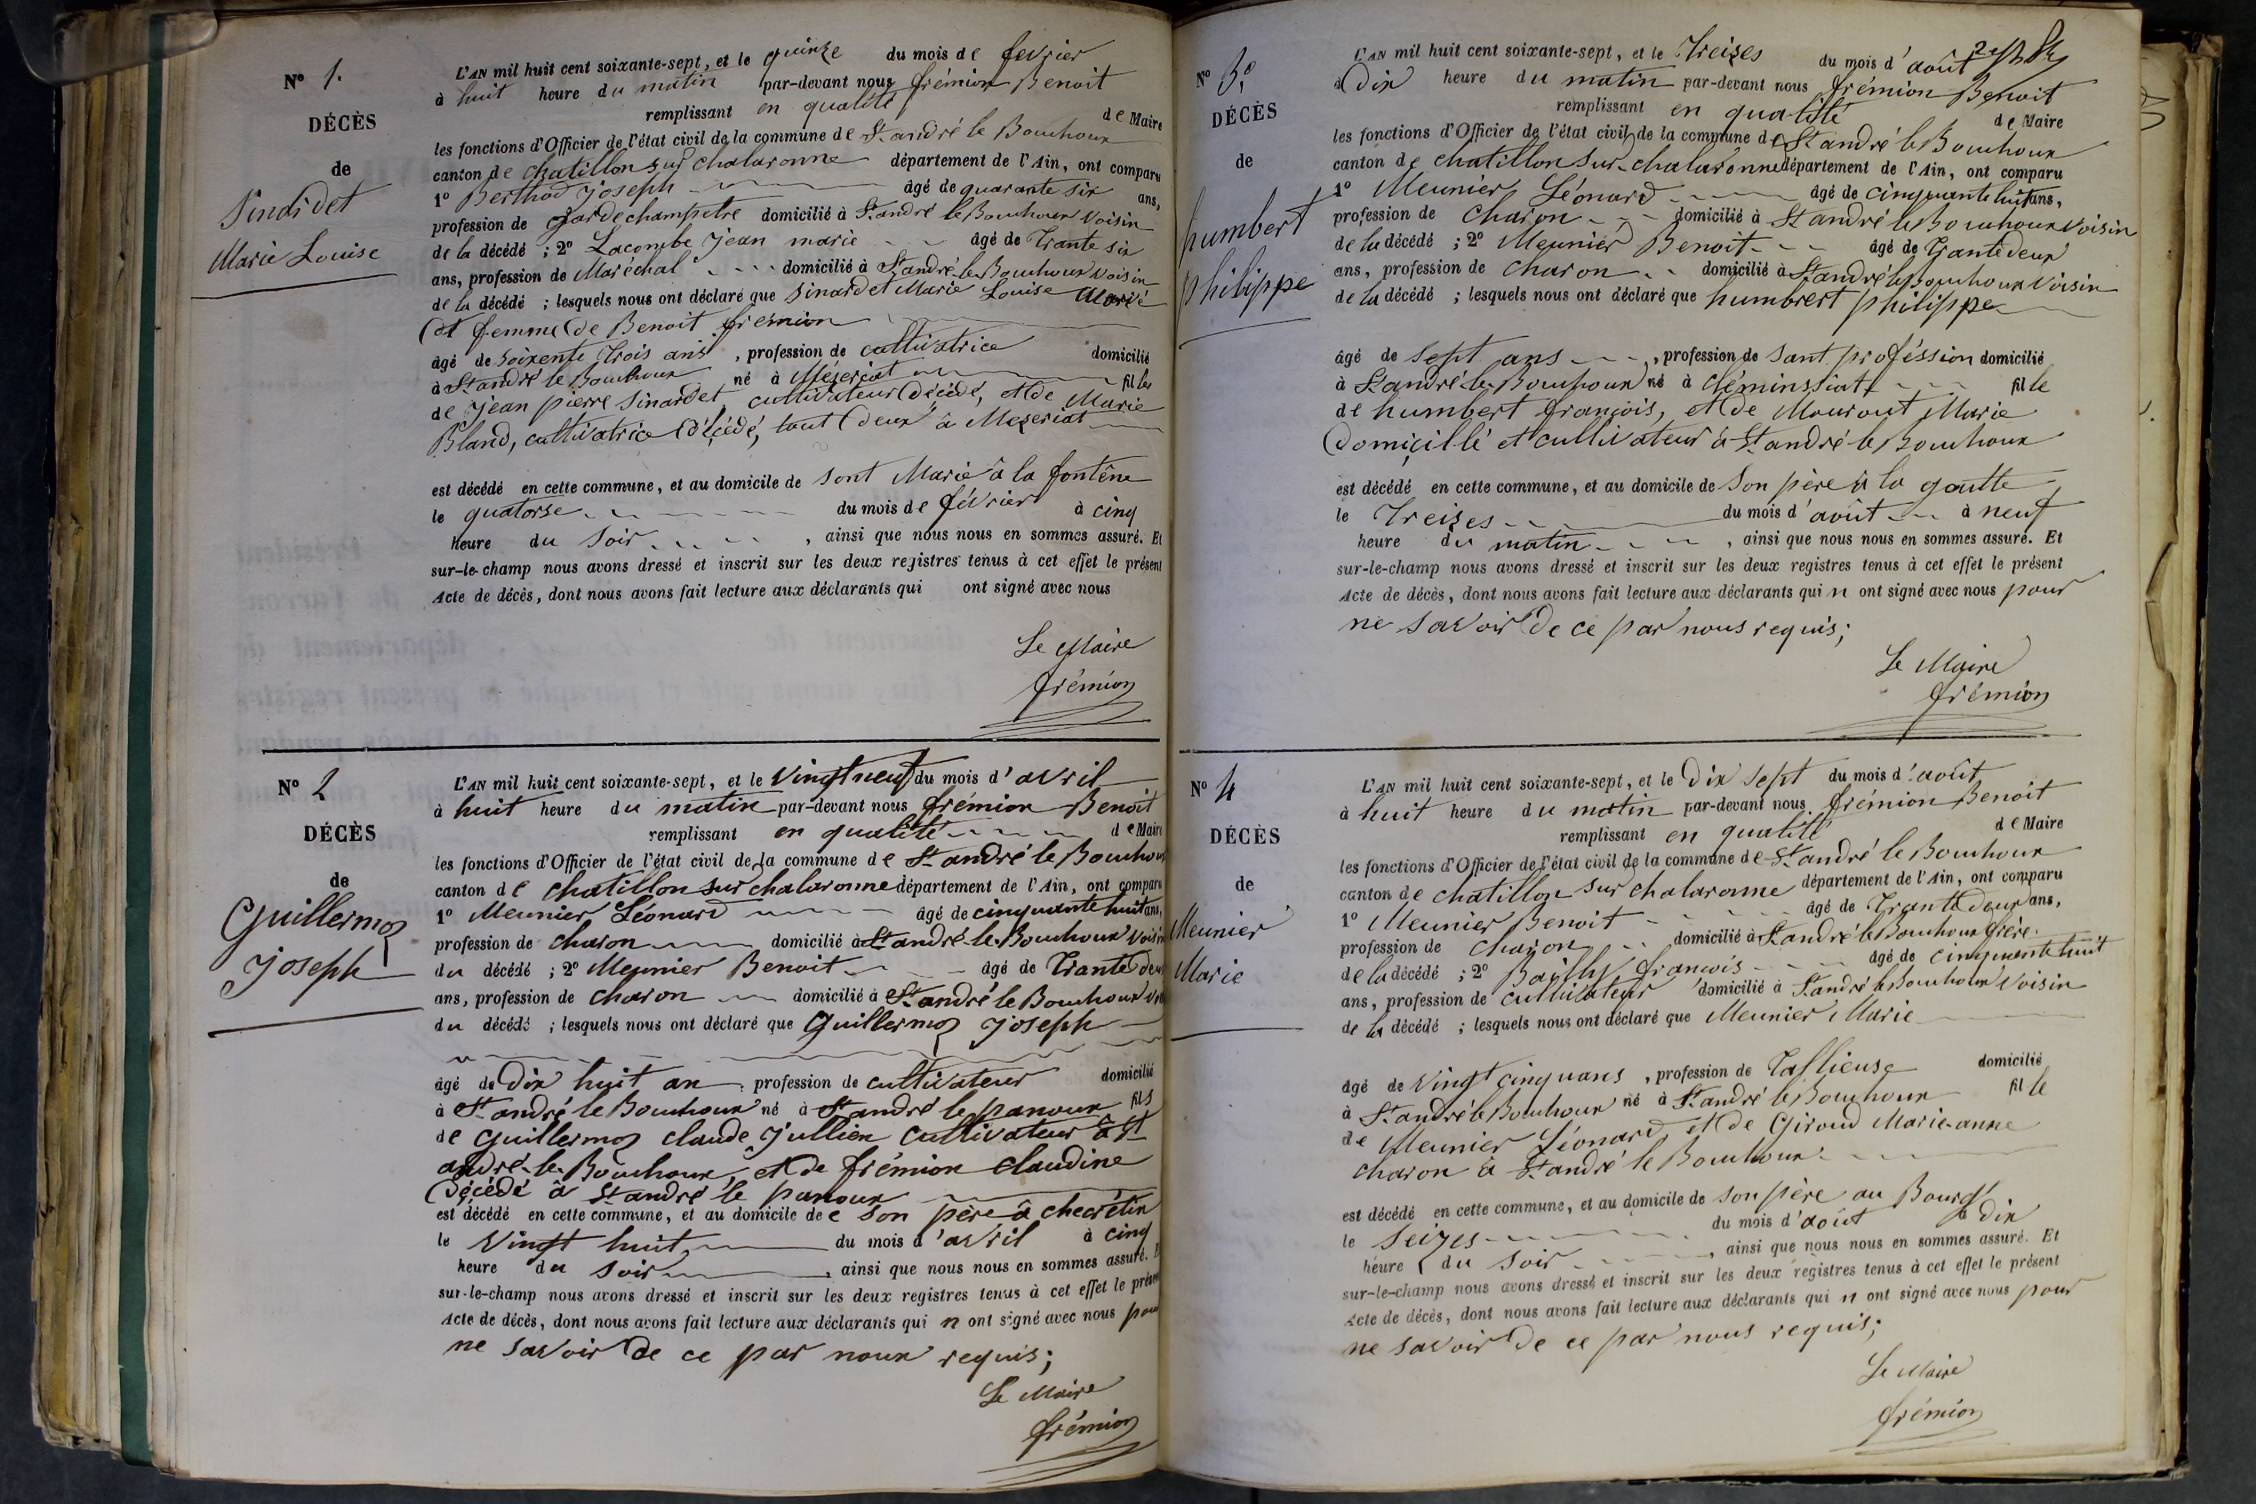 N° 1.
DÉCÈS
de
Sinardet
Marie Louise
L'AN mil huit cent soixante-sept, et le quinze du mois de fevrier
à huit heure du matin par-devant nous frémion Benoit
remplissant en qualité de Maire
les fonctions d'Officier de l'état civil de la commune de St andré le Bouchoux
canton de chatillon sur chalaronne département de l'Ain, ont comparu
1° Berthod Joseph âgé de quarante six ans,
profession de garde champetre domicilié à St andré le Bouchoux voisin
de la décédé ; 2° Lacombe Jean marie âgé de Trante six
ans, profession de Maréchal domicilié à St andré le Bouchoux voisin
de la décédé ; lesquels nous ont déclaré que Sinardet Marie Louise Marié
et femme de Benoit frémion
âgé de soixente Trois ans, profession de cultivatrice domicilié
à St andré le Bouchoux né à Mézeriat fille
de Jean pierre Sinardet cultivateur décédé, et de Marie
Bland, cultivatrice décédé, tout deux à Mezeriat
est décédé en cette commune, et au domicile de sont Marié à la fontêne
le quatorse du mois de février à cinq
heure du soir, ainsi que nous nous en sommes assuré. Et
sur-le-champ nous avons dressé et inscrit sur les deux registres tenus à cet effet le présent
Acte de décès, dont nous avons fait lecture aux déclarants qui ont signé avec nous
Le Maire
frémion
N° 2
DÉCÈS
de
Guillermoz
Joseph
L'AN mil huit cent soixante-sept, et le Vingt neuf du mois d'avril
à huit heure du matin par-devant nous frémion Benoit
remplissant en qualité de Maire
les fonctions d'Officier de l'état civil de la commune de St andré le Bouchoux
canton de chatillon sur chalaronne département de l'Ain, ont comparu
1° Meunier Léonard âgé de cinquante huit ans,
profession de charon domicilié à St andré le Bouchoux voisin
du décédé ; 2° Meunier Benoit âgé de Trante deux
ans, profession de charon domicilié à St andré le Bouchoux
du décédé ; lesquels nous ont déclaré que Guillermoz Joseph
âgé de Dix huit an, profession de cultivateur domicilié
à St andré le Bouchoux né à St andré le panoux fils
de Guillermoz claude Jullien cultivateur à St
andré le Bouchoux, et de frémion claudine
décédé à St andré le panoux
est décédé en cette commune, et au domicile de e son père à checrétin
le Vingt huit du mois d'avril à cinq
heure du soir, ainsi que nous nous en sommes assuré.
sur-le-champ nous avons dressé et inscrit sur les deux registres tenus à cet effet le présent
Acte de décès, dont nous avons fait lecture aux déclarants qui n ont signé avec nous pour
ne savoir de ce par noux requis;
Le Maire
frémion
N° 3°.
DÉCÈS
de
humbert
philippe
L'AN mil huit cent soixante-sept, et le Treizes du mois d'août
à Dix heure du matin par-devant nous frémion Benoit
remplissant en qualité de Maire
les fonctions d'Officier de l'état civil de la commune de St andré le Bouchoux
canton de chatillon sur chalaronne département de l'Ain, ont comparu
1° Meunier Léonard âgé de cinquante huit ans,
profession de charon domicilié à St andré le Bouchoux voisin
de la décédé ; 2° Meunier Benoit âgé de Trante deux
ans, profession de charon domicilié à St andré le Bouchoux voisin
de la décédé ; lesquels nous ont déclaré que humbrert philippe
âgé de sept ans, profession de sant proféssion domicilié
à St andré le Bouchoux né à cléminssiatt fille
de humbert françois, et de Mourout Marie
domicillé et cultivateur à St andré le Bouchoux
est décédé en cette commune, et au domicile de son père à la goutte
le Treizes du mois d'août à neuf
heure du matin, ainsi que nous nous en sommes assuré. Et
sur-le-champ nous avons dressé et inscrit sur les deux registres tenus à cet effet le présent
Acte de décès, dont nous avons fait lecture aux déclarants qui n ont signé avec nous pour
ne savoir de ce par nous requis;
Le Maire
frémion
N° 4
DÉCÈS
de
Meunier
Marie
L'AN mil huit cent soixante-sept, et le Dix sept du mois d'août
à huit heure du matin par-devant nous frémion Benoit
remplissant en qualité de Maire
les fonctions d'Officier de l'état civil de la commune de St andré le Bouchoux
canton de chatillon sur chalaronne département de l'Ain, ont comparu
1° Meunier Benoit âgé de Trante deux ans,
profession de charon domicilié à St andré le Bouchoux frère
de la décédé ; 2° Bailly françois âgé de cinquante huit
ans, profession de cultivateur domicilié à St andré le Bouchoux voisin
de la décédé ; lesquels nous ont déclaré que Meunier Marie
âgé de vingt cinq uans, profession de Taillieuse domicilié
à St andré le Bouchoux né à St andré le Bouchoux fille
de Meunier Léonard, et de Giroud Marie-anne
charon à St andré le Bouchoux
est décédé en cette commune, et au domicile de son père au Bourg
le seizes du mois d'août à dix
heure du soir, ainsi que nous nous en sommes assuré. Et
sur-le-champ nous avons dressé et inscrit sur les deux registres tenus à cet effet le présent
Acte de décès, dont nous avons fait lecture aux déclarants qui n ont signé avec nous pour
ne savoir de ce par nous requis;
Le Maire
frémion